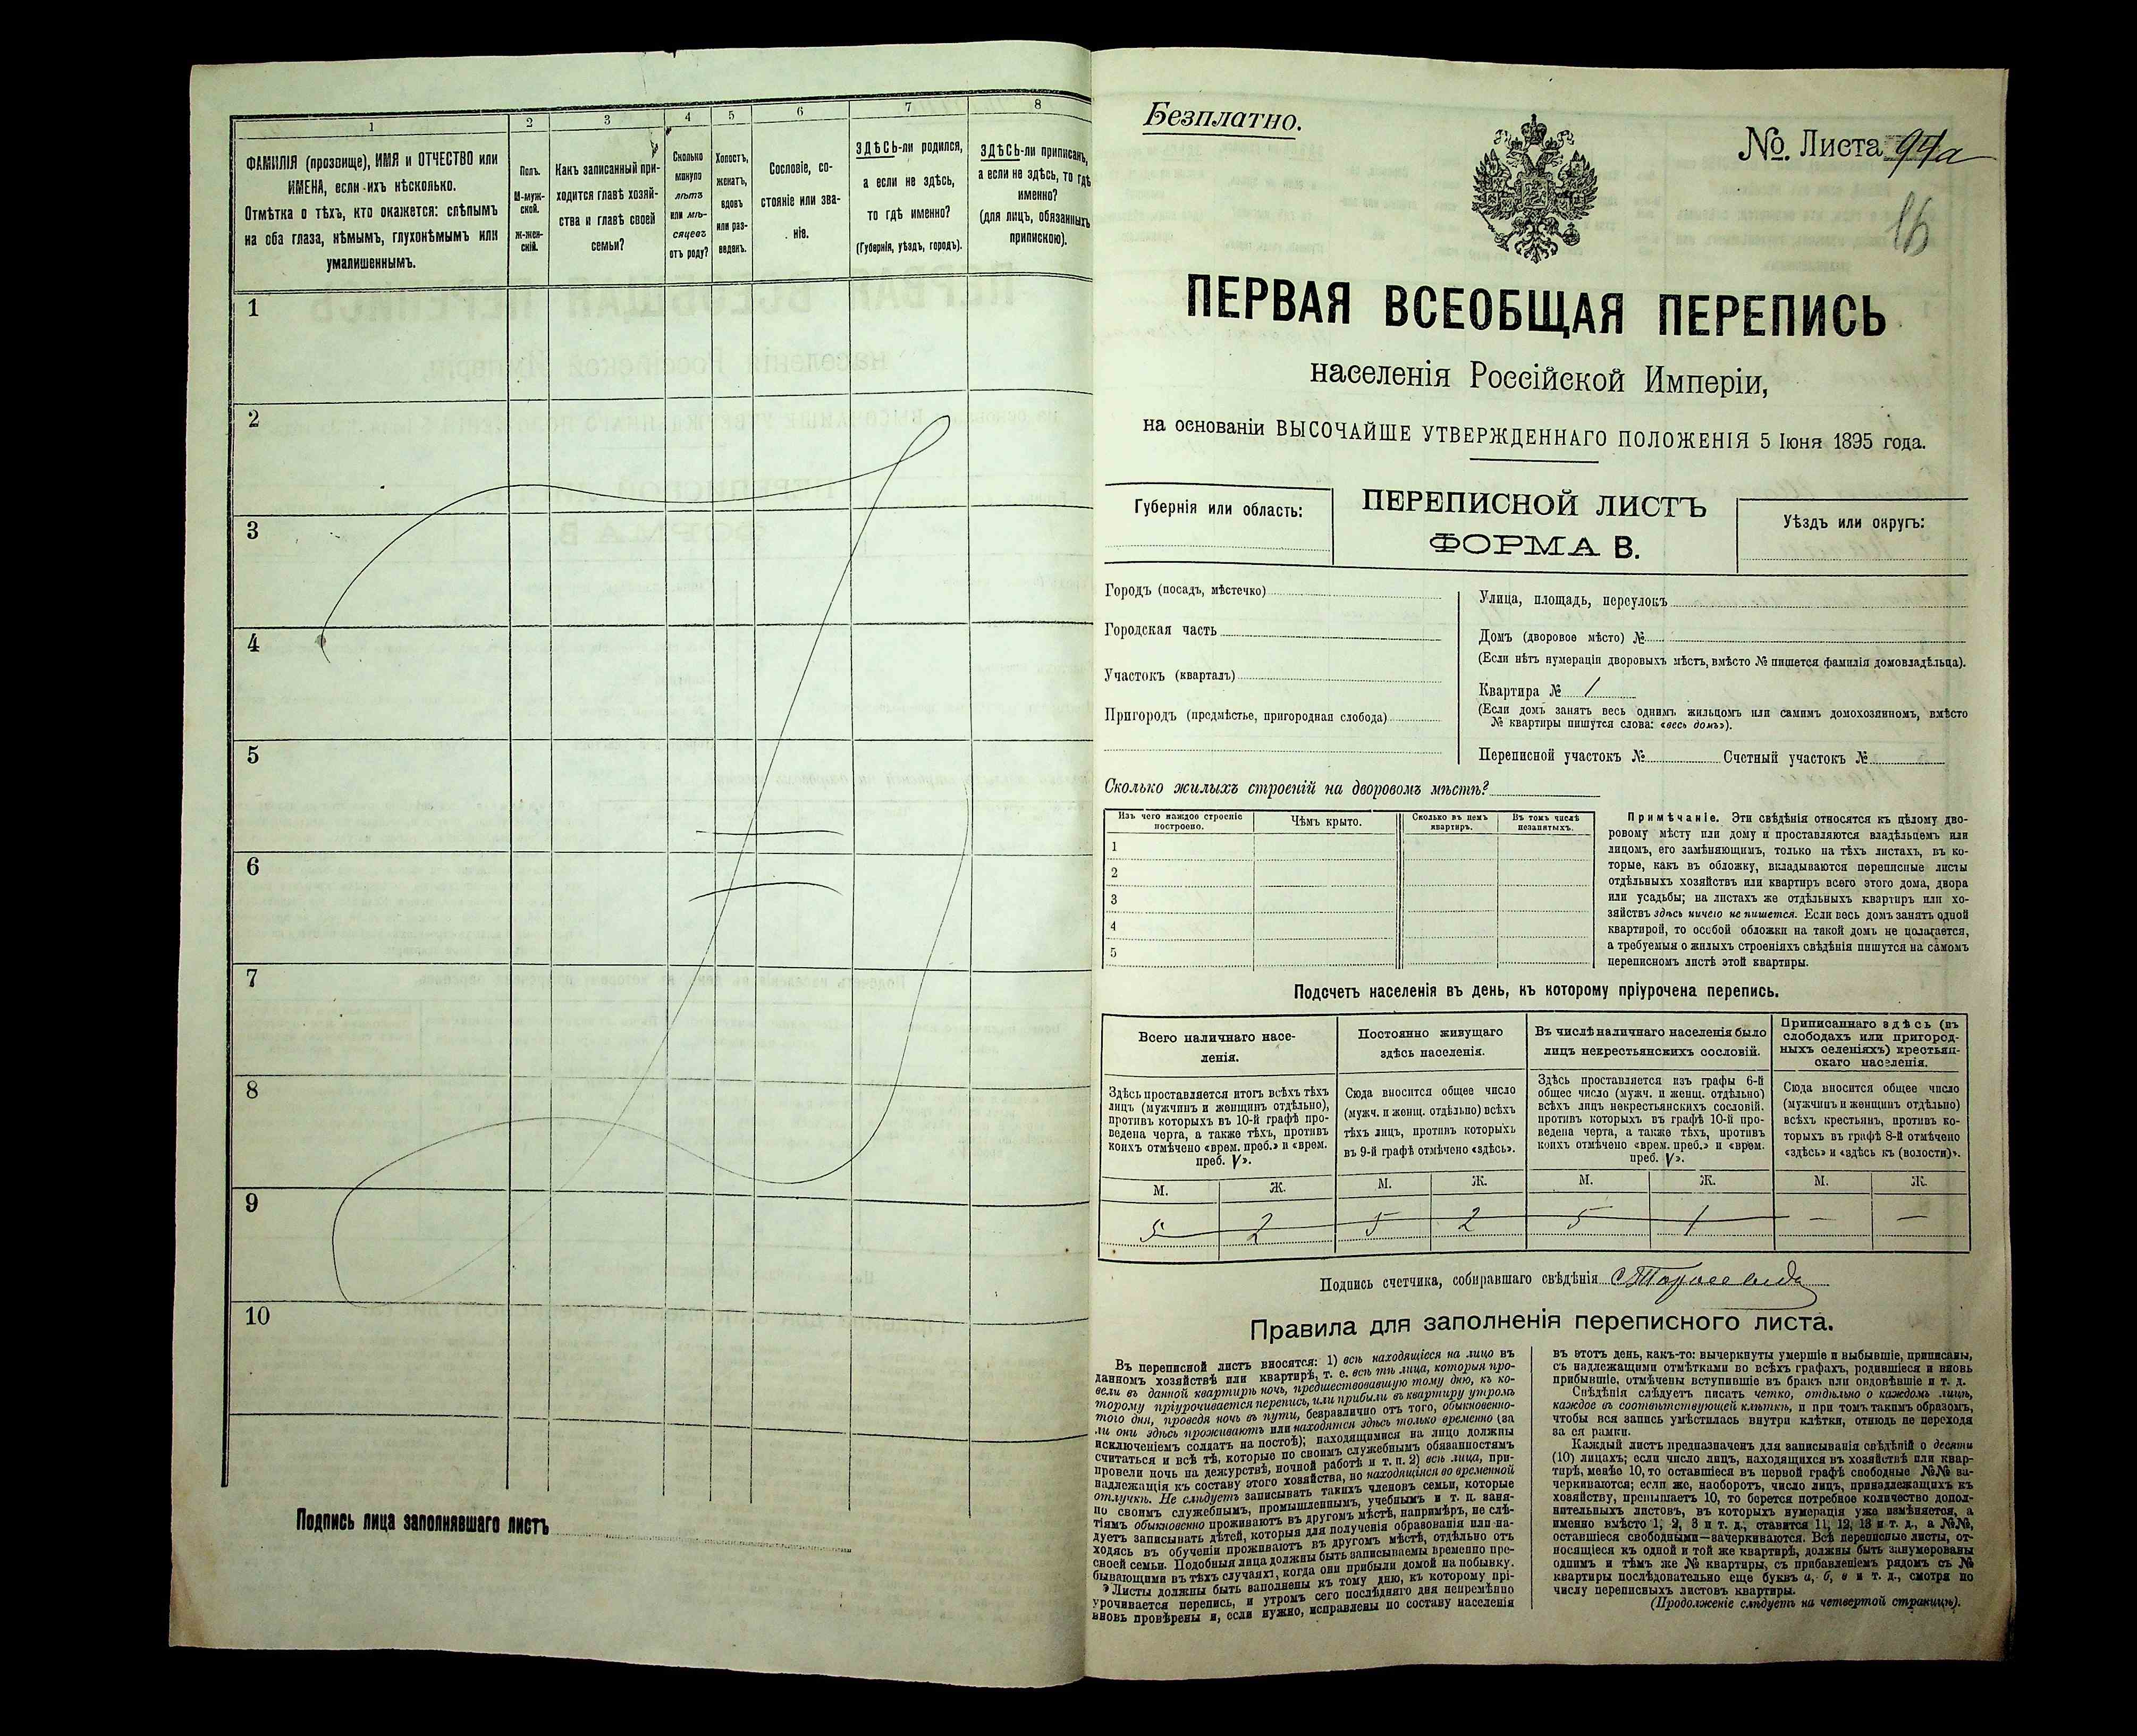 1 2 3 4 5 6 7 8
ФАМИЛІЯ (прозвище), ИМЯ и ОТЧЕСТВО или
ИМЕНА, если ихъ нѣсколько.
Отмѣтка о тѣхъ, кто окажется: слѣпымъ
на оба глаза, нѣмымъ, глухонѣмымъ или
умалишеннымъ.
Полъ.
М-муж-
ской.
Ж-жен-
скій.
Какъ записанный при-
ходится главѣ хозяй-
ства и главѣ своей
семьи?
Сколько
минуло
лѣтъ
или мѣ-
сяцевъ
отъ роду?
Холостъ,
женатъ,
вдовъ
или раз-
веденъ.
Сословіе, со-
стояніе или зва-
ніе.
ЗДѢСЬ-ли родился,
а если не здѣсь,
то гдѣ именно?
(Губернія, уѣздъ, городъ).
ЗДѢСЬ-ли приписанъ,
а если не здѣсь, то гдѣ
именно?
(для лицъ, обязанныхъ
припискою).
1
2
3
4
5
6
7
8
9
10
Подпись лица заполнявшаго листъ
Безплатно.
№ Листа 94а
16
ПЕРВАЯ ВСЕОБЩАЯ ПЕРЕПИСЬ
населенія Россійской Имперіи,
на основаніи ВЫСОЧАЙШЕ УТВЕРЖДЕННАГО ПОЛОЖЕНІЯ 5 Іюня 1895 года.
Губернія или область:
ПЕРЕПИСНОЙ ЛИСТЪ
ФОРМА В.
Уѣздъ или округъ:
Городъ (посадъ, мѣстечко)
Городская часть
Участокъ (кварталъ)
Пригородъ (предмѣстье, пригородная слобода)
Улица, площадь, переулокъ
Домъ (дворовое мѣсто) №
(Если нѣтъ нумераціи дворовыхъ мѣстъ, вмѣсто № пишется фамилія домовладѣльца).
Квартира № 1
(Если домъ занятъ весь однимъ жильцомъ или самимъ домохозяиномъ, вмѣсто
№ квартиры пишутся слова: «весь домъ»).
Переписной участокъ № Счетный участокъ №
Сколько жилыхъ строеній на дворовомъ мѣстѣ?
Изъ чего каждое строеніе
построено.
Чѣмъ крыто.
Сколько въ немъ
квартиръ.
Въ томъ числѣ
незанятыхъ.
1
2
3
4
5
Примѣчаніе. Эти свѣдѣнія относятся къ цѣлому дво-
ровому мѣсту или дому и проставляются владѣльцемъ или
лицомъ, его замѣняющимъ, только на тѣхъ листахъ, въ ко-
торые, какъ въ обложку, вкладываются переписные листы
отдѣльныхъ хозяйствъ или квартиръ всего этого дома, двора
или усадьбы; на листахъ же отдѣльныхъ квартиръ или хо-
зяйствъ здѣсь ничего не пишется. Если весь домъ занятъ одной
квартирой, то особой обложки на такой домъ не полагается,
а требуемыя о жилыхъ строеніяхъ свѣдѣнія пишутся на самомъ
переписномъ листѣ этой квартиры.
Подсчетъ населенія въ день, къ которому пріурочена перепись.
Всего наличнаго насе-
ленія.
Здѣсь проставляется итогъ всѣхъ тѣхъ
лицъ (мужчинъ и женщинъ отдѣльно),
противъ которыхъ въ 10-й графѣ про-
ведена черта, а также тѣхъ, противъ
коихъ отмѣчено «врем. преб.» и «врем.
преб. V».
Постоянно живущаго
здѣсь населенія.
Сюда вносится общее число
(мужч. и женщ. отдѣльно) всѣхъ
тѣхъ лицъ, противъ которыхъ
въ 9-й графѣ отмѣчено «здѣсь».
Въ числѣ наличнаго населенія было
лицъ некрестьянскихъ сословій.
Здѣсь проставляется изъ графы 6-й
общее число (мужч. и женщ. отдѣльно)
всѣхъ лицъ некрестьянскихъ сословій.
противъ которыхъ въ графѣ 10-й про-
ведена черта, а также тѣхъ, противъ
коихъ отмѣчено «врем. преб.» и «врем.
преб. V».
Приписаннаго здѣсь (въ
слободахъ или пригород-
ныхъ селеніяхъ) крестьян-
скаго населенія.
Сюда вносится общее число
(мужчинъ и женщинъ отдѣльно)
всѣхъ крестьянъ, противъ ко-
торыхъ въ графѣ 8-й отмѣчено
«здѣсь» и «здѣсь къ (волости)».
М. Ж. М. Ж. М. Ж. М. Ж.
5 2 5 2 5 1 — —
Подпись счетчика, собиравшаго свѣдѣнія
Правила для заполненія переписного листа.
Въ переписной листъ вносятся: 1) всѣ находящіеся на лицо въ
данномъ хозяйствѣ или квартирѣ, т. е. всѣ тѣ лица, которыя про-
вели въ данной квартирѣ ночь, предшествовавшую тому дню, къ ко-
торому пріурочивается перепись, или прибыли въ квартиру утромъ
того дня, проведя ночь въ пути, безразлично отъ того, обыкновенно-
ли они здѣсь проживаютъ или находятся здѣсь только временно (за
исключеніемъ солдатъ на постоѣ); находящимися на лицо должны
считаться и всѣ тѣ, которые по своимъ служебнымъ обязанностямъ
провели ночь на дежурствѣ, ночной работѣ и т. п. 2) всѣ лица, при-
надлежащія къ составу этого хозяйства, но находящіяся во временной
отлучкѣ. Не слѣдуетъ записывать такихъ членовъ семьи, которые
по своимъ служебнымъ, промышленнымъ, учебнымъ и т. п. заня-
тіямъ обыкновенно проживаютъ въ другомъ мѣстѣ, напримѣръ, не слѣ-
дуетъ записывать дѣтей, которыя для полученія образованія или на-
ходясь въ обученіи проживаютъ въ другомъ мѣстѣ, отдѣльно отъ
своей семьи. Подобныя лица должны быть записываемы временно пре-
бывающими въ тѣхъ случаяхъ, когда они прибыли домой на побывку.
Листы должны быть заполнены къ тому дню, къ которому прі-
урочивается перепись, и утромъ сего послѣдняго дня непремѣнно
вновь провѣрены и, если нужно, исправлены по составу населенія
въ этотъ день, какъ-то: вычеркнуты умершіе и выбывшіе, приписаны,
съ надлежащими отмѣтками во всѣхъ графахъ, родившіеся и вновь
прибывшіе, отмѣчены вступившіе въ бракъ или овдовѣвшіе и т. д.
Свѣдѣнія слѣдуетъ писать четко, отдѣльно о каждомъ лицѣ,
каждое въ соотвѣтствующей клѣткѣ, и при томъ такимъ образомъ,
чтобы вся запись умѣстилась внутри клѣтки, отнюдь не переходя
за ея рамки.
Каждый листъ предназначенъ для записыванія свѣдѣній о десяти
(10) лицахъ; если число лицъ, находящихся въ хозяйствѣ или квар-
тирѣ, менѣе 10, то оставшіеся въ первой графѣ свободные №№ за-
черкиваются; если же, наоборотъ, число лицъ, принадлежащихъ къ
хозяйству, превышаетъ 10, то берется потребное количество допол-
нительныхъ листовъ, въ которыхъ нумерація уже измѣняется, а
именно вмѣсто 1, 2, 3 и т. д., ставится 11, 12, 13 и т. д., а №№,
оставшіеся свободными—зачеркиваются. Всѣ переписные листы, от-
носящіеся къ одной и той же квартирѣ, должны быть занумерованы
однимъ и тѣмъ же № квартиры, съ прибавленіемъ рядомъ съ №
квартиры послѣдовательно еще буквъ а, б, в и т. д., смотря по
числу переписныхъ листовъ квартиры.
(Продолженіе слѣдуетъ на четвертой страницѣ).